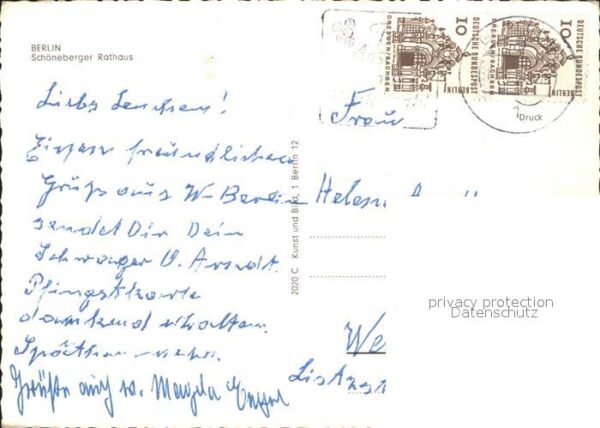 BERLIN
Schöneberger Rathaus
Liebs Lenchen!
Einen freundlichen
Gruß aus W-Berlin
sendet Dir Dein
Schwager W. Arndt.
Pfingstkarte
dankend erhalten.
Später mehr.
Grüße auch v.
2020 C Kunst und Bild, 1 Berlin 12
DEUTSCHE BUNDESPOST
BERLIN
10
DRESDEN/SACHSEN
DEUTSCHE BUNDESPOST
BERLIN
10
DRESDEN/SACHSEN
1
Druck
Frau
Helene
We
privacy protection
Datenschutz